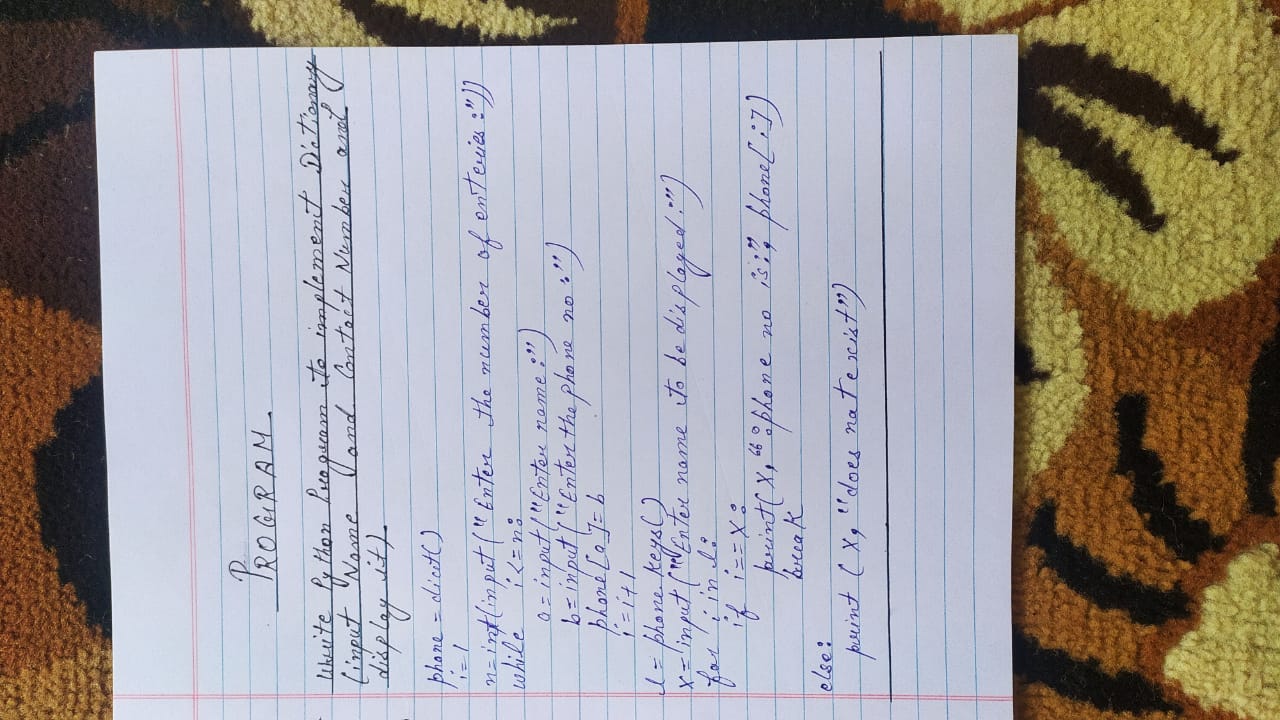 PROGRAM
Write Python Program to implement Dictionary
(input Name and Contact Number and
display it)
phone = dict()
i=1
n=int(input("Enter the number of enteries:"))
while i<=n:
a=input("Enter name:")
b=input("Enter the phone no:")
phone[a]=b
i=i+1
l=phone.keys()
x=input("Enter name to be displayed:")
for i in l:
if i==x:
print(x,":phone no is:", phone[i])
break
else:
print(x,"does not exist")